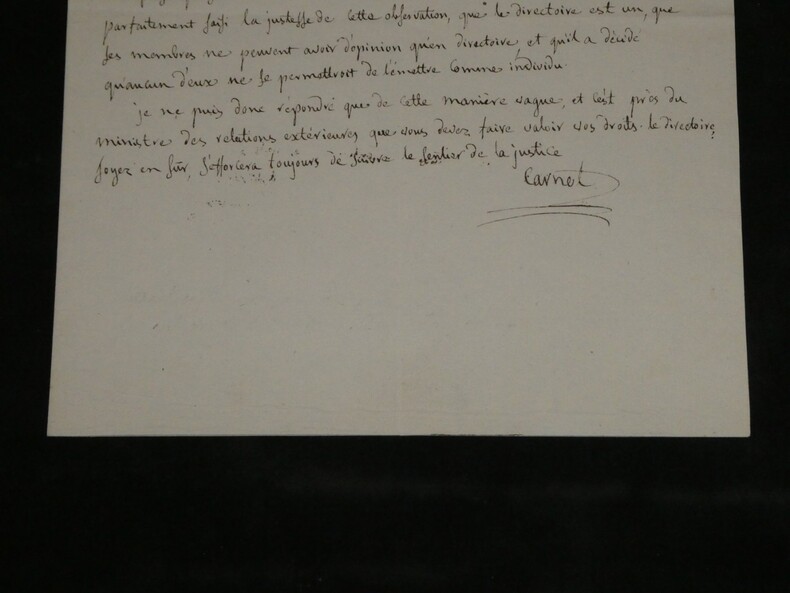 parfaitement saisi la justesse de cette observation, que le directoire est un, que
ses membres ne peuvent avoir d'opinion qu'en directoire, et qu'il a décidé
qu'aucun d'eux ne se permettroit de l'émettre comme individu.
je ne puis donc répondre que de cette manière vague, et c'est près du
ministre des relations extérieures que vous devez faire valoir vos droits. le directoire,
soyez en sûr, s'efforcera toujours de suivre le sentier de la justice
Carnot